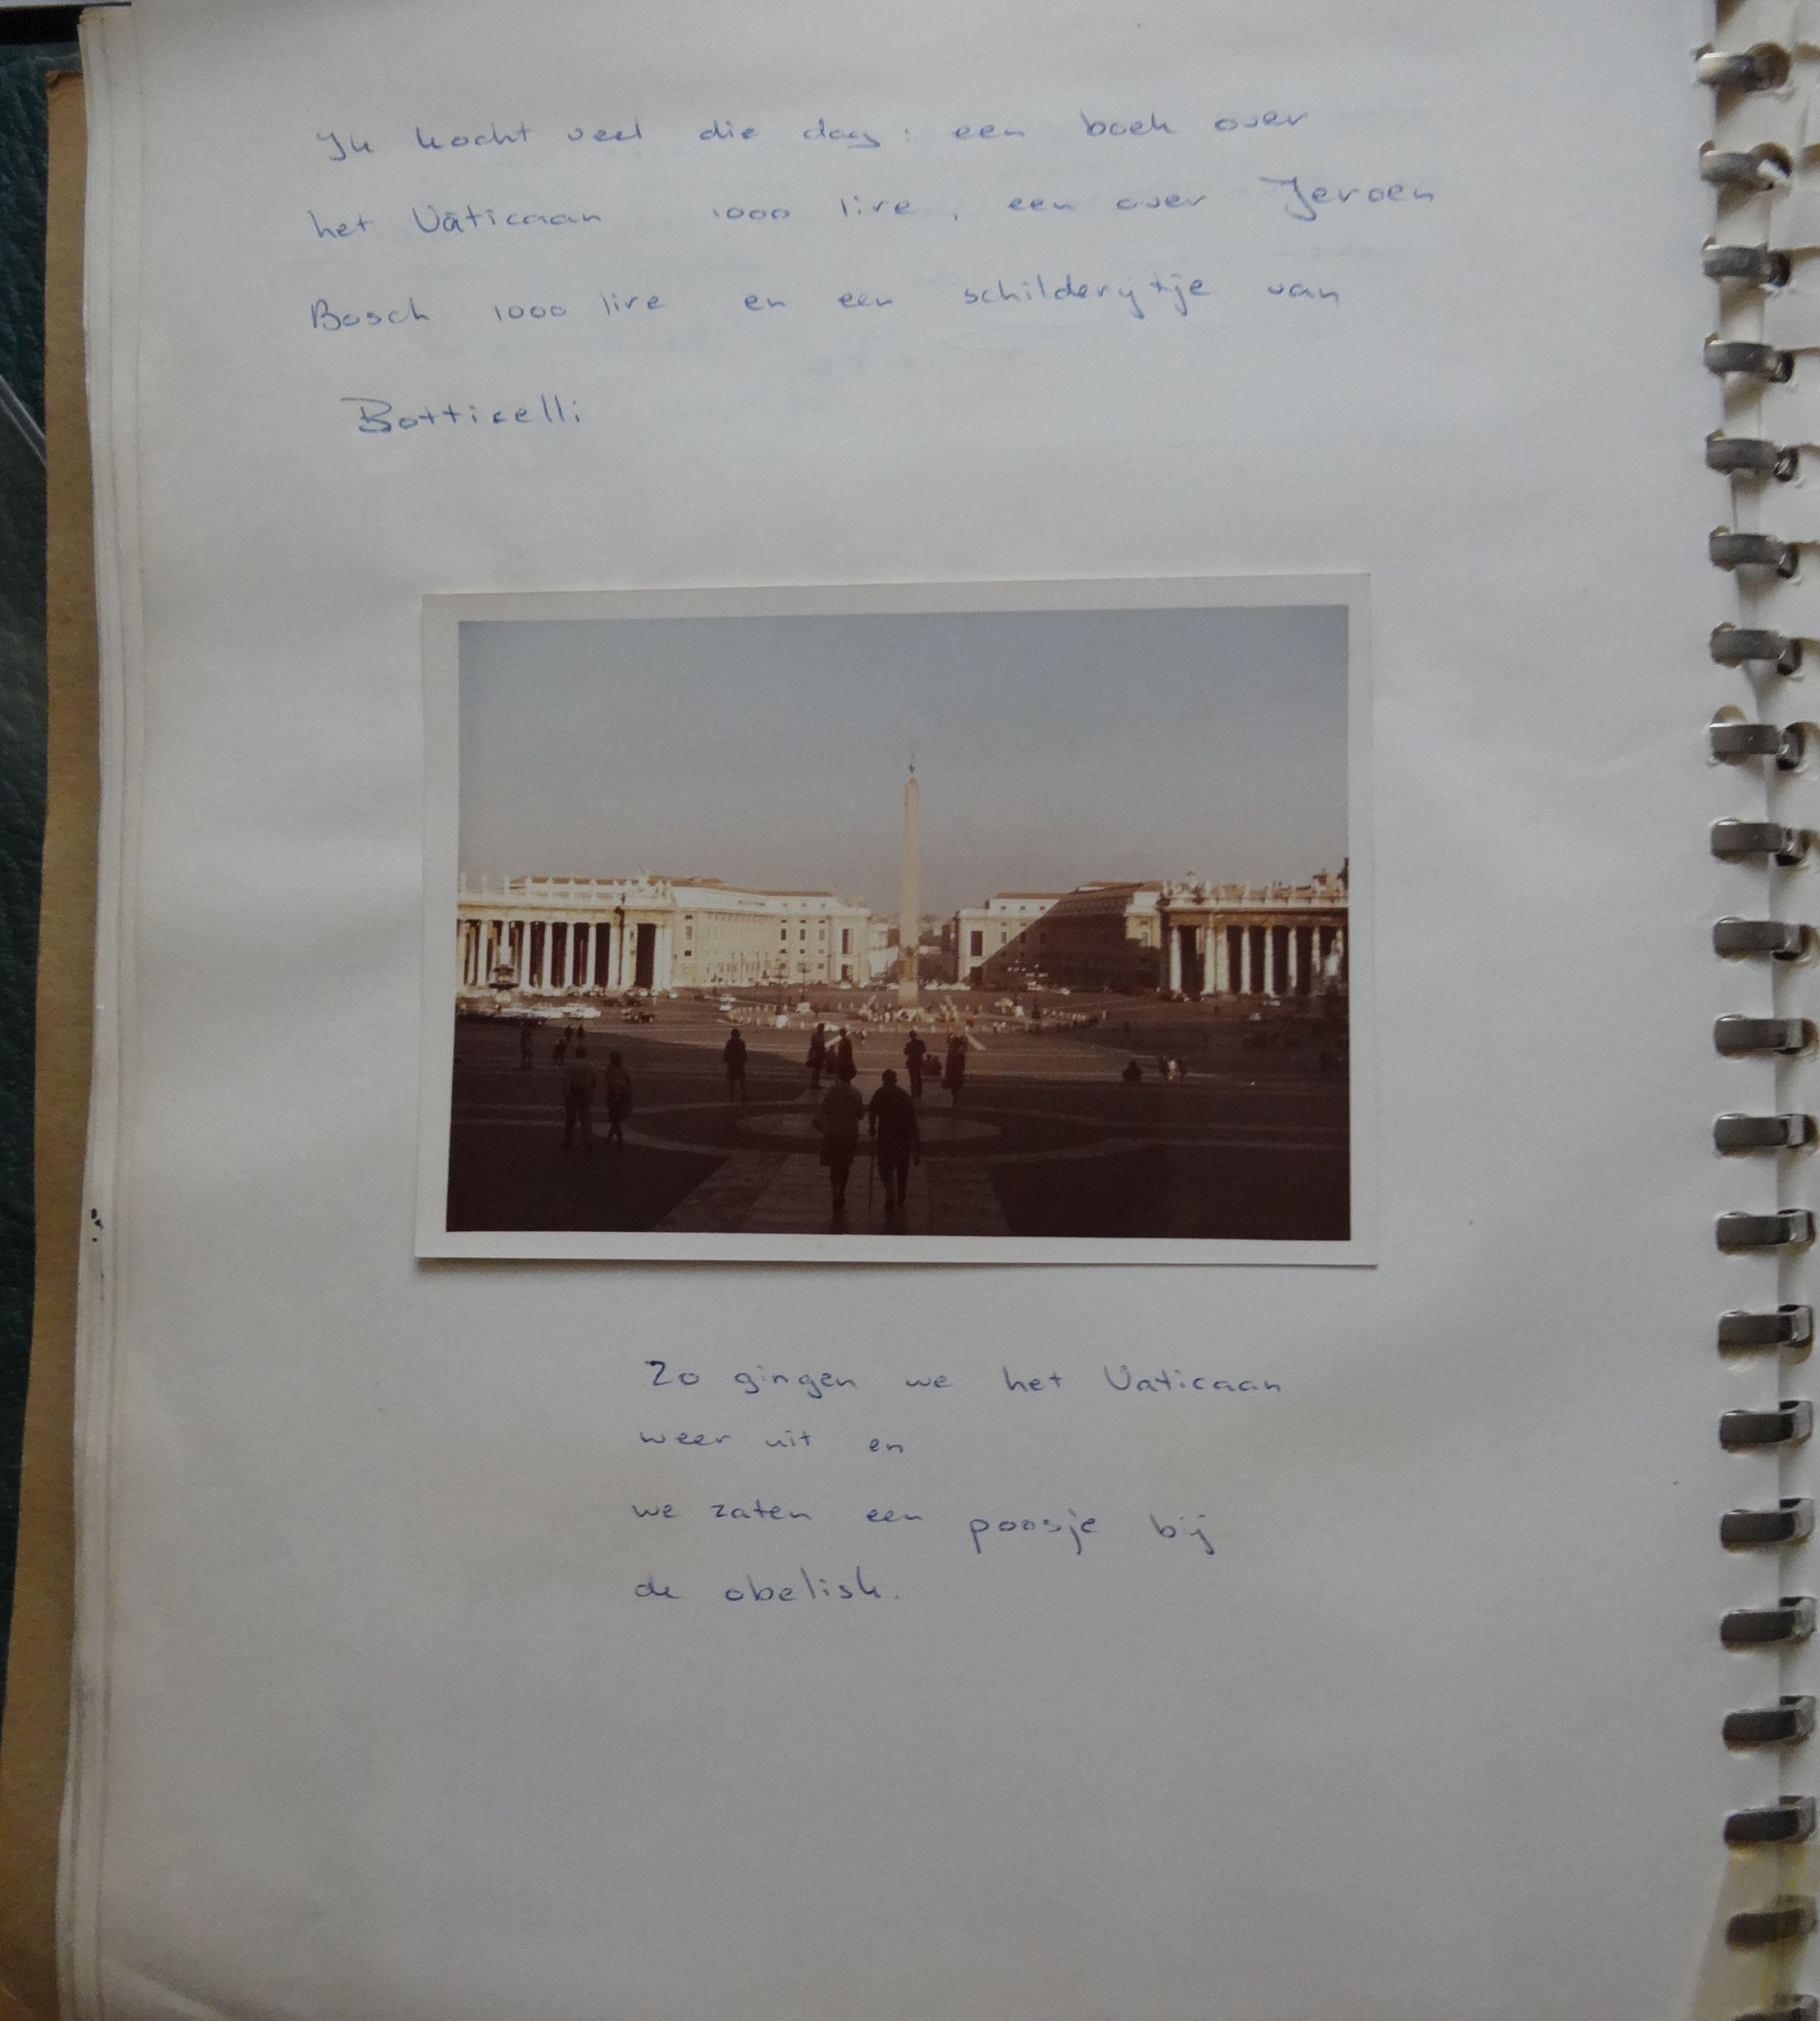 Ik kocht veel die dag: een boek over
het Vaticaan 1000 lire, een over Jeroen
Bosch 1000 lire en een schilderijtje van
Botticelli
Zo gingen we het Vaticaan
weer uit en
we zaten een poosje bij
de obelisk.